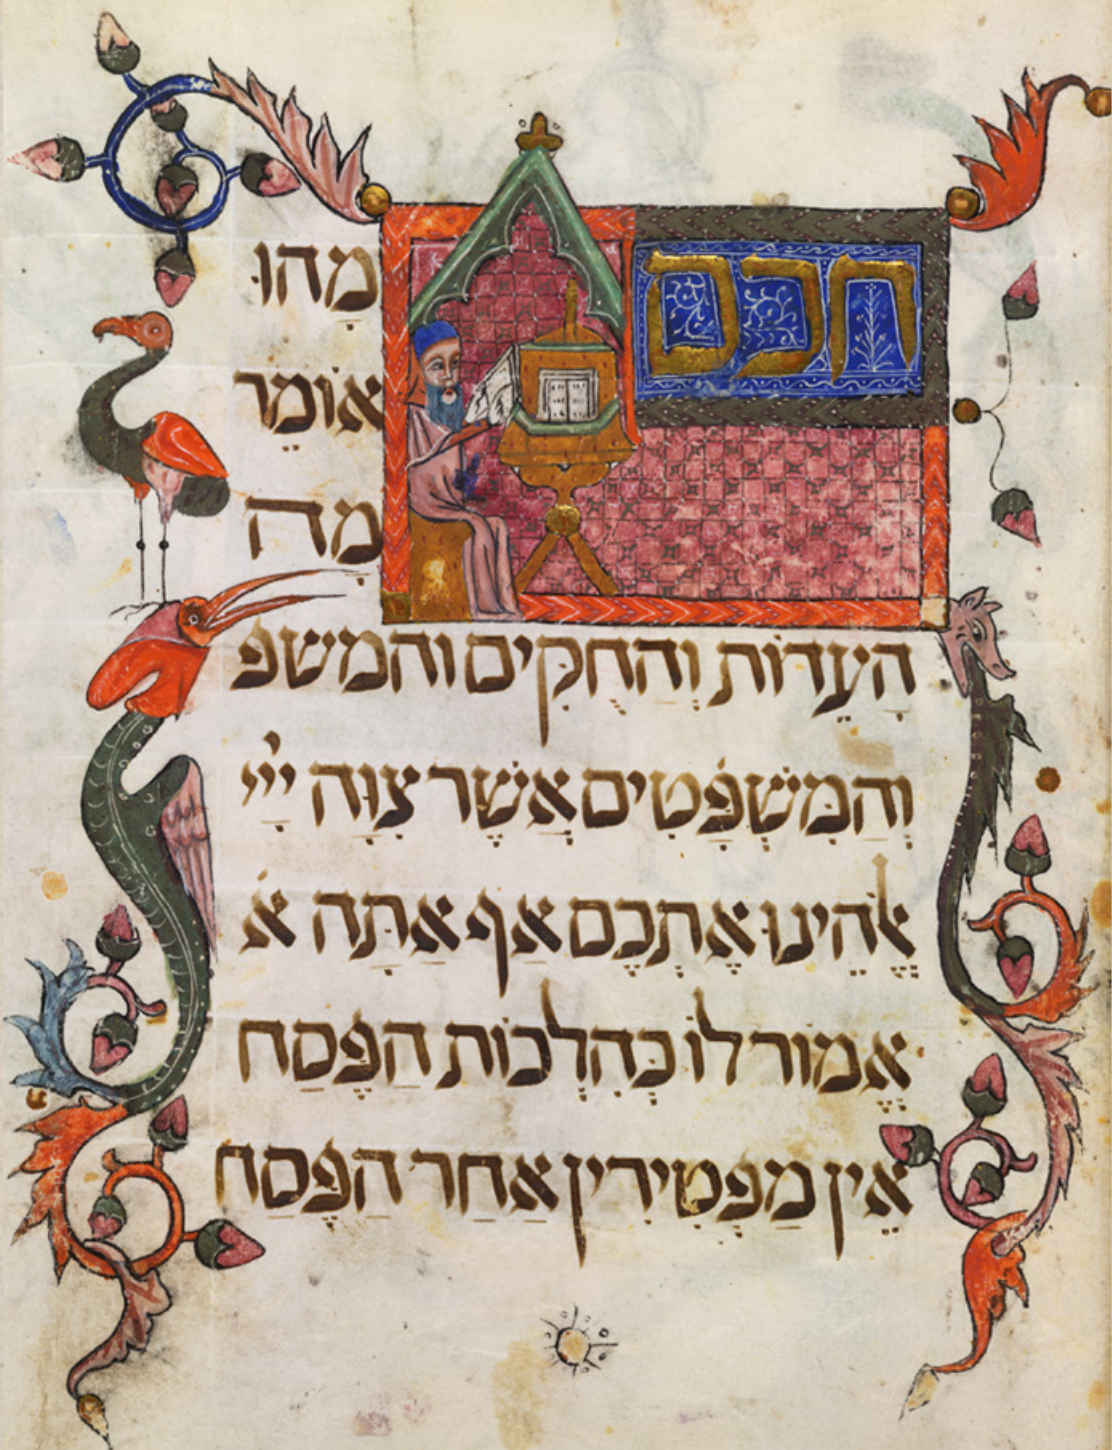 חכם
מָהוּ
אוֹמֵר
מַה
הָעֵדוֹת וְהַחֻקִּים והמשפ
וְהַמִּשְׁפָּטִים אֲשֶׁר צִוָּה יְיָ
אֱלֹהֵינוּ אֶתְכֶם אַף אַתָּה א
אֱמוֹר לוֹ כְּהִלְכוֹת הַפֶּסַח
אֵין מַפְטִירִין אַחַר הַפֶּסַח